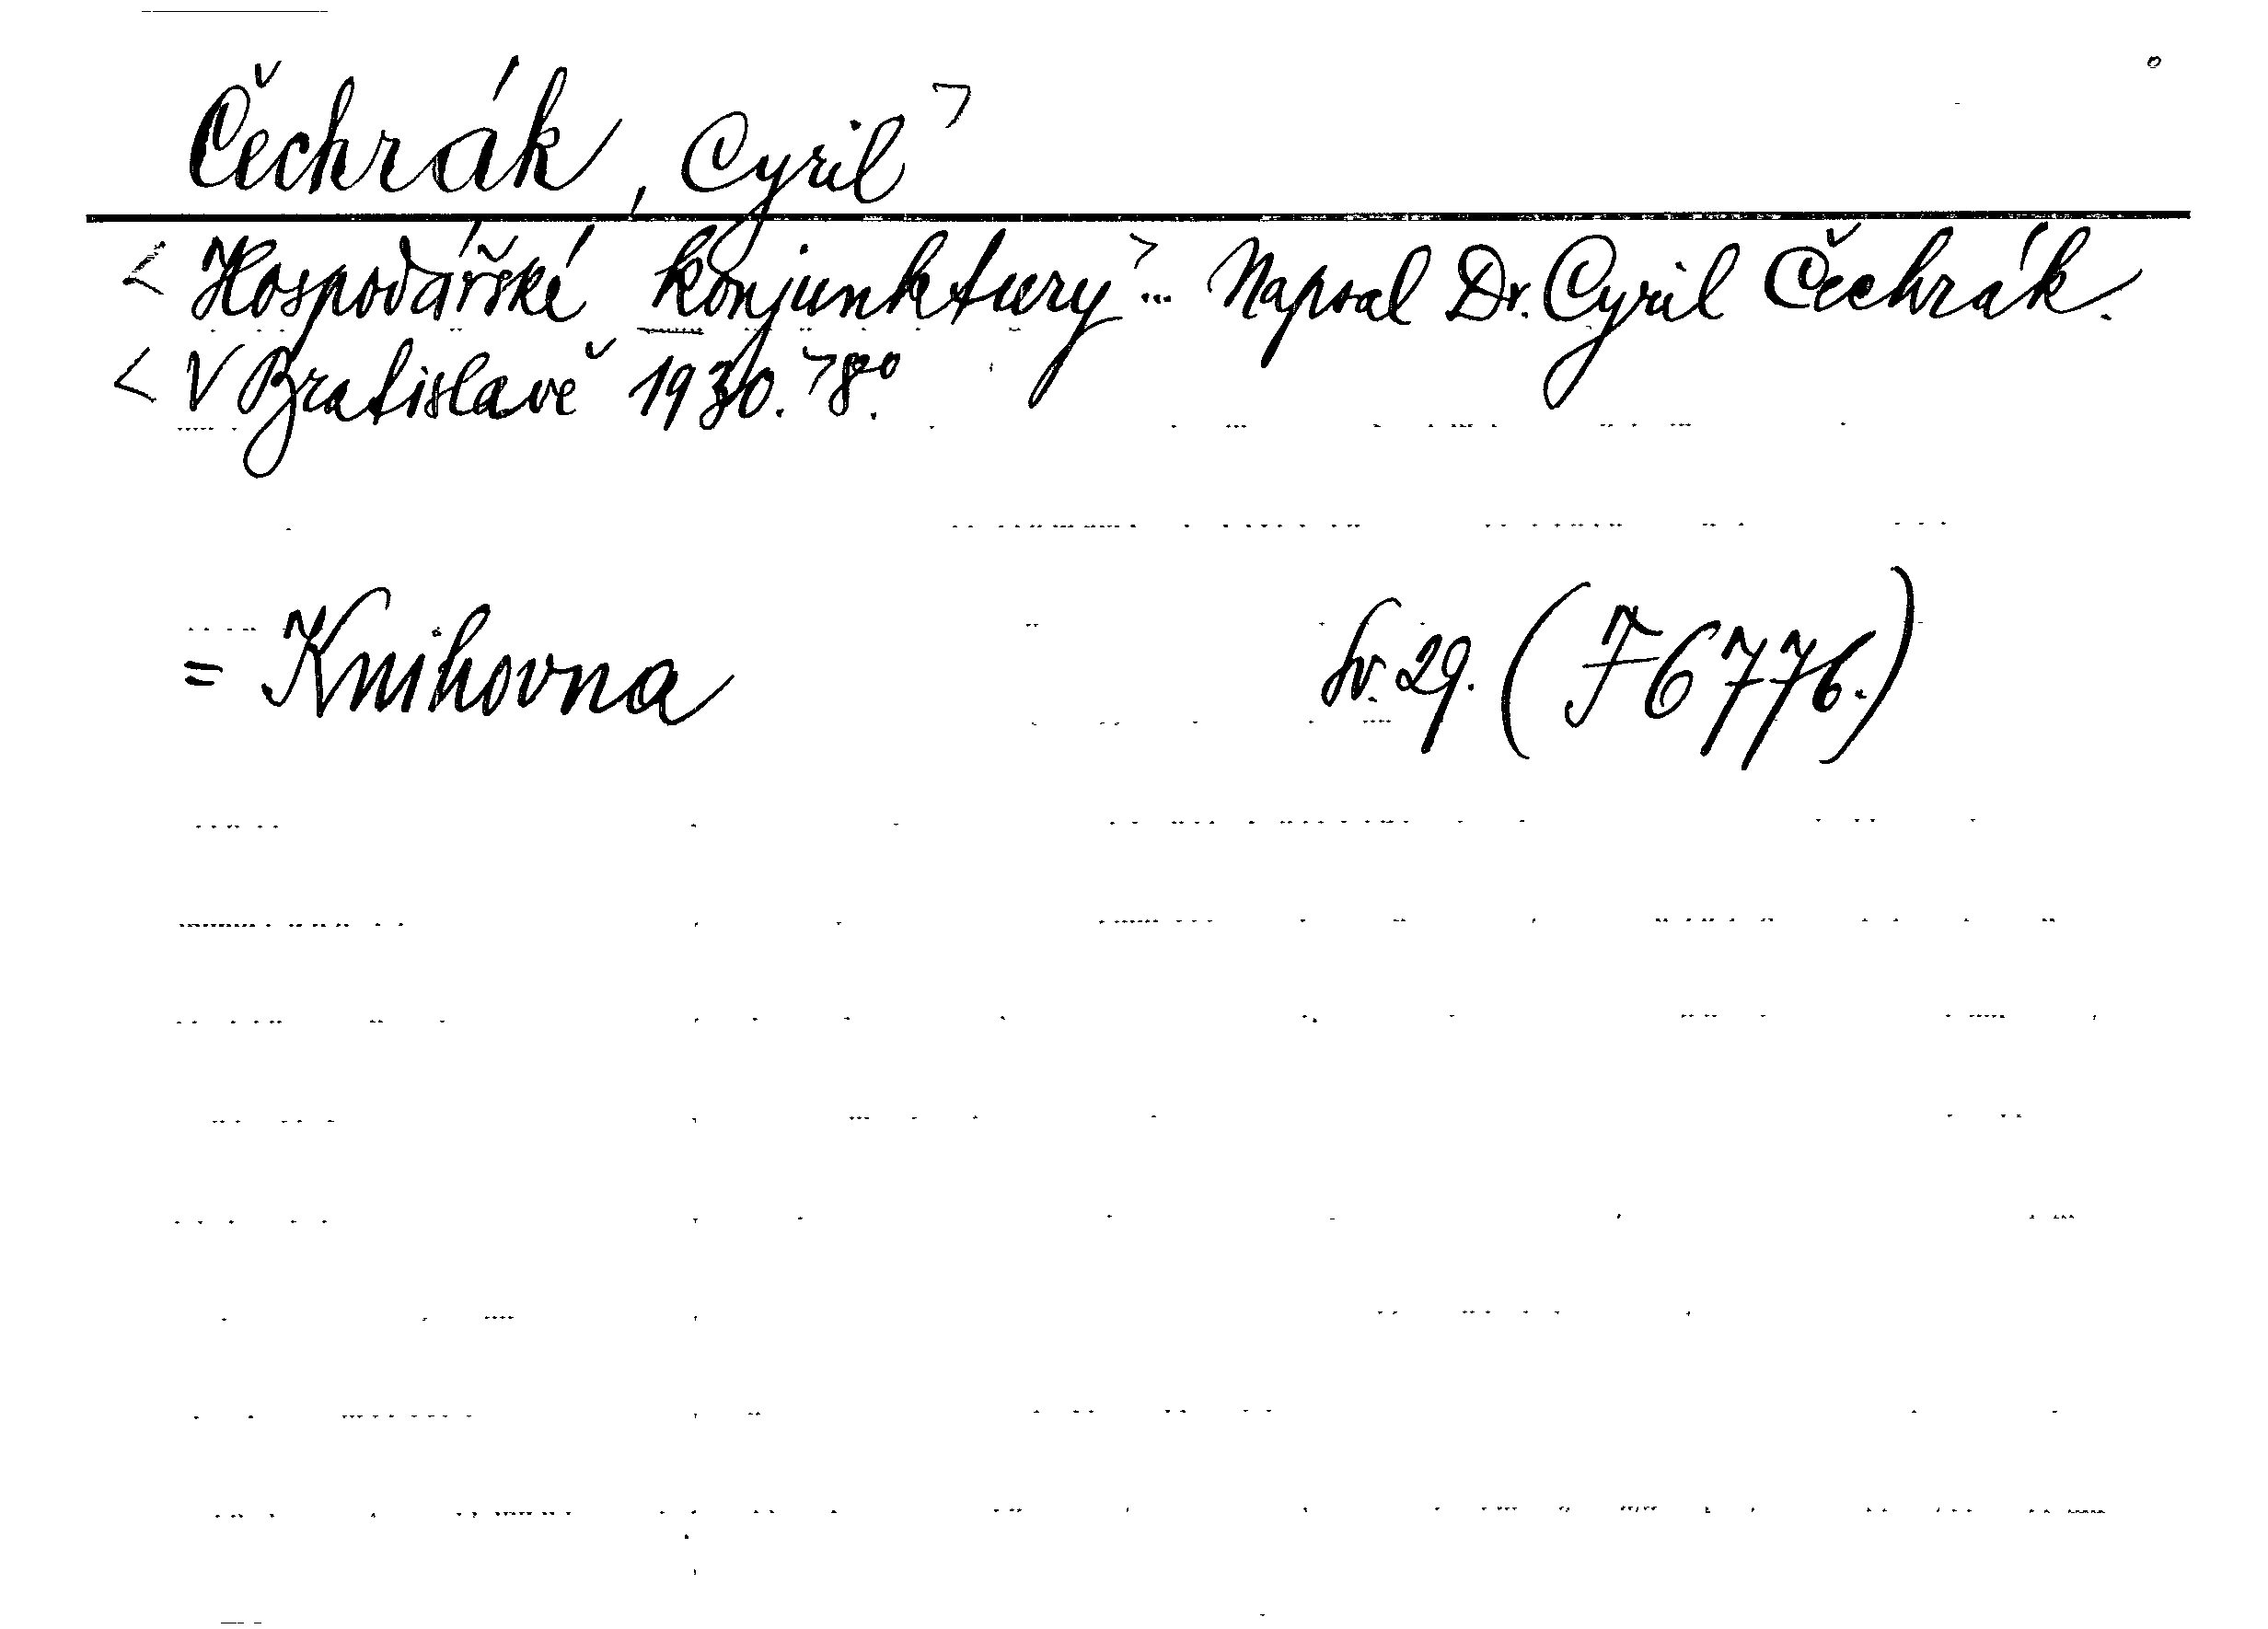 Čechrák, Cyril>
<Hospodářské konjunktury>... Napsal Dr. Cyril Čechrák.
<V Bratislavě 1930.>8º.
= Knihovna Sv. 29. (F 6776.)